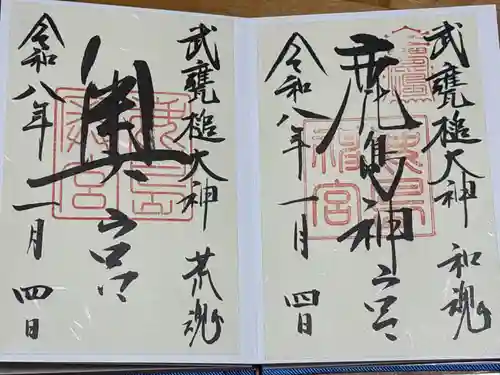 武甕槌大神 和魂
鹿島神宮
令和八年 一月 四日
武甕槌大神 荒魂
奥宮
令和八年 一月 四日